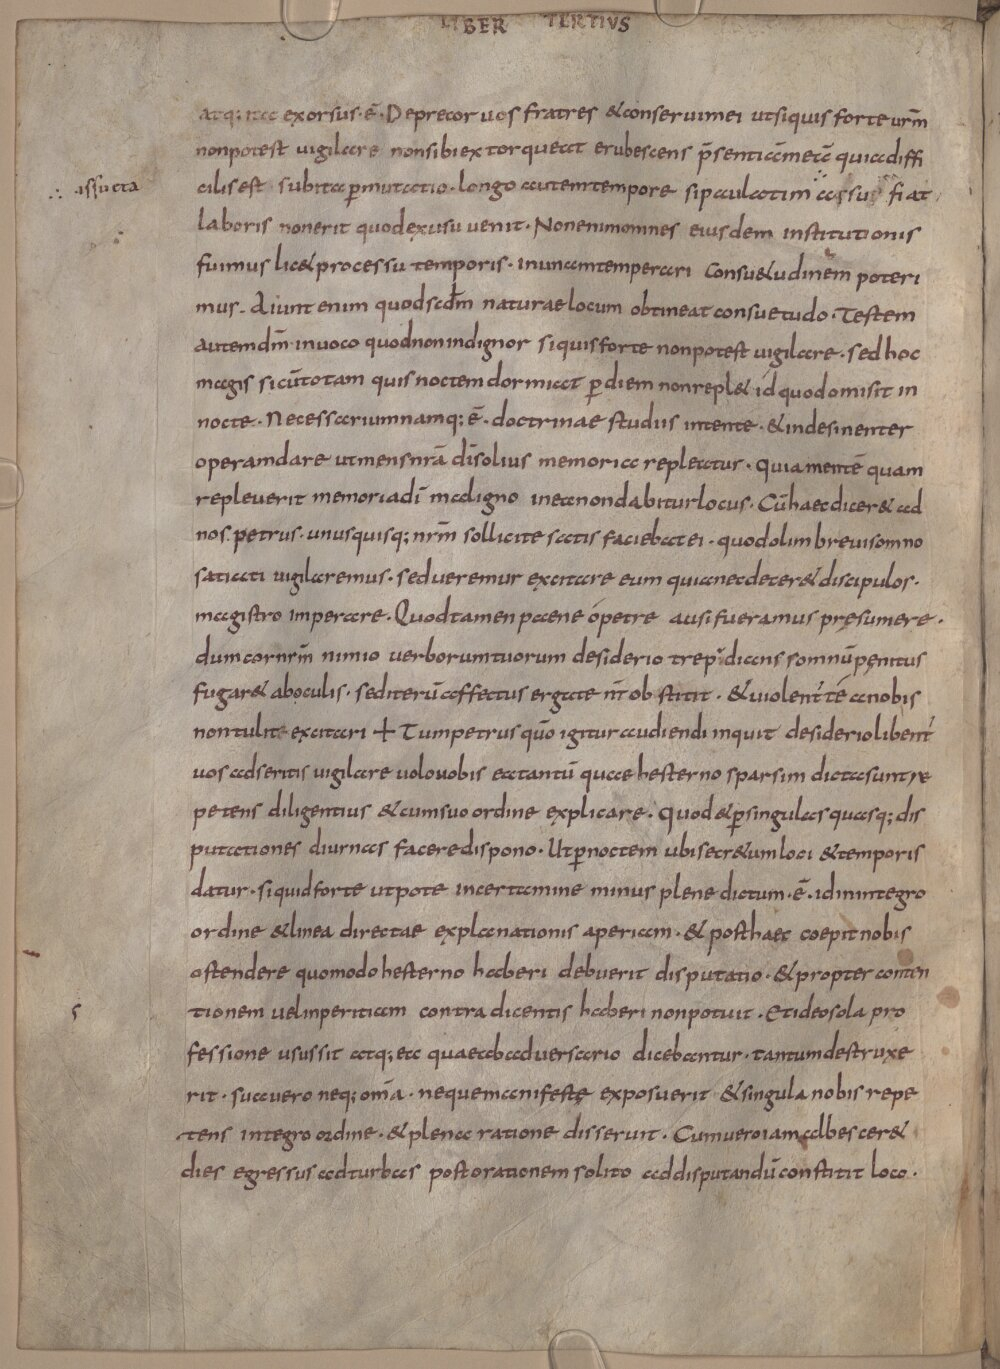 LIBER TERTIVS
atq; ita exorsus · ē · Deprecor uos fratres & conserui mei ut siquis forte urm̄
non potest uigilare non sibi extorqueat erubescens p̄sentiā meā quia diffi
cilis est subita ꝑmutatio · longo autem tempore si paulatim assu fiat
∴ assueta
laboris non erit quod ex usu uenit · Non enim omnes eiusdem institutionis
fuimus lic& processu temporis · in unam temperari consu&udinem poteri
mus · Aiunt enim quod scdm̄ naturae locum obtineat consuetudo · Testem
autem dm̄ inuoco quod non indignor siquis forte non potest uigilare · sed hoc
magis si cū totam quis noctem dormiat ꝑ diem non repl& id quod omisit in
nocte · Necessarium namq; ē · doctrinae studiis intente · & indesinenter
operam dare ut mens nrā dī solius memoria repleatur · quia mentē quam
repleuerit memoria dī maligno in ea non dabitur locus · Cū haec dicer& ad
nos petrus · unusquisq; nrm̄ sollicite satis faciebat ei · quod olim breui somno
satiati uigilaremus · sed ueremur excitare eum quia nec decer& discipulos ·
magistro imperare · Quod tamen paene o petre ausi fueramus pręsumere ·
dum cor nrm̄ nimio uerborum tuorum desiderio trepidans somnū pęnitus
fugar& ab oculis · sed iterū affectus erga te nr̄ obstitit · & uiolent te a nobis
non tulit excitari + Tum petrus quō igitur audiendi inquit desiderio libent
uos adseritis uigilare uolo uobis ea tantū quae hesterno sparsim dicta sunt re
petens diligentius & cum suo ordine explicare · quod & ꝑ singulas quasq; dis
putationes diurnas facere dispono · Ut ꝑ noctem ubi secr&um loci & temporis
datur · siquid forte utpote in certamine minus plene dictum · ē · id in integro
ordine & linea directae explanationis aperiam · & posthaec coepit nobis
ostendere quomodo hesterno haberi debuerit disputatio · & propter conten
tionem uel inperitiam contradicentis haberi non potuit · Et ideo sola pro
fessione usus sit atq; ea quae ab aduersario dicebantur · tantum destruxe
rit · sua uero neq; omā · neque manifestę exposuerit & singula nobis repe
tens integro ordine · & plena ratione disseruit · Cum uero iam albescer&
dies egressus ad turbas post orationem solito ad disputandū constitit loco ·